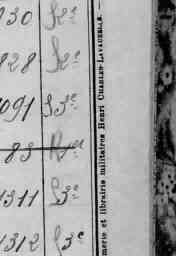 930 S2e
828 S2e
091 S3e
83
1311 S3e
1312 S3e
merie et librairie militaires Henri CHARLES-LAVAUZELLE. —